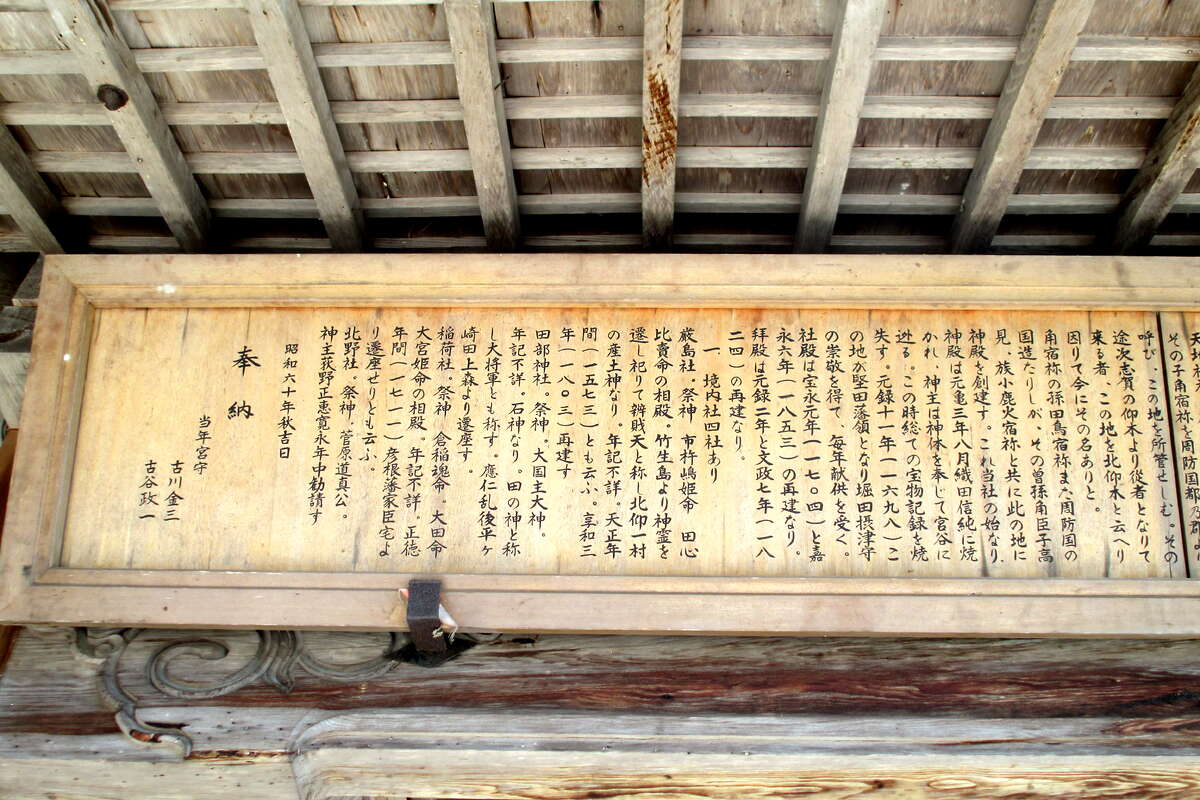 その子角宿祢を周防国都乃郡よ
呼び、この地を所管せしむ。その
途次志賀の仰木より従者となりて
来る者、この地を北仰木と云へり
因りて今にその名ありと。
角宿祢の孫田鳥宿祢また周防国の
国造たりしが、その曽孫角臣子高
見、族小鹿火宿祢と共に此の地に
神殿を創建す。これ当社の始なり。
神殿は元亀三年八月織田信純に焼
かれ、神主は神体を奉じて宮谷に
逃る。この時総ての宝物記録を焼
失す。元録十一年(一六九八)こ
の地が堅田藩領となり堀田摂津守
の崇敬を得て、毎年献供を受く。
社殿は宝永元年(一七〇四)と嘉
永六年(一八五三)の再建なり。
拝殿は元録二年と文政七年(一八
二四)の再建なり。
一、境内社四社あり
厳島社。祭神 市杵嶋姫命 田心
比賣命の相殿。竹生島より神霊を
遷し祀りて辨戝天と称し北仰一村
の産土神なり。年記不詳。天正年
間(一五七三)とも云ふ。享和三
年(一八〇三)再建す
田部神社。祭神。大国主大神。
年記不詳。石神なり。田の神と称
し大将軍とも称す。應仁乱後平ヶ
崎田上森より遷座す。
稲荷社。祭神 倉稲魂命。大田命
大宮姫命の相殿。年記不詳。正徳
年間(一七一一)彦根藩家臣宅よ
り遷座せりとも云ふ。
北野社。祭神。菅原道真公。
神主荻野正恵寛永年中勧請す
昭和六十年秋吉日
奉納
当年宮守
古川金三
古谷政一